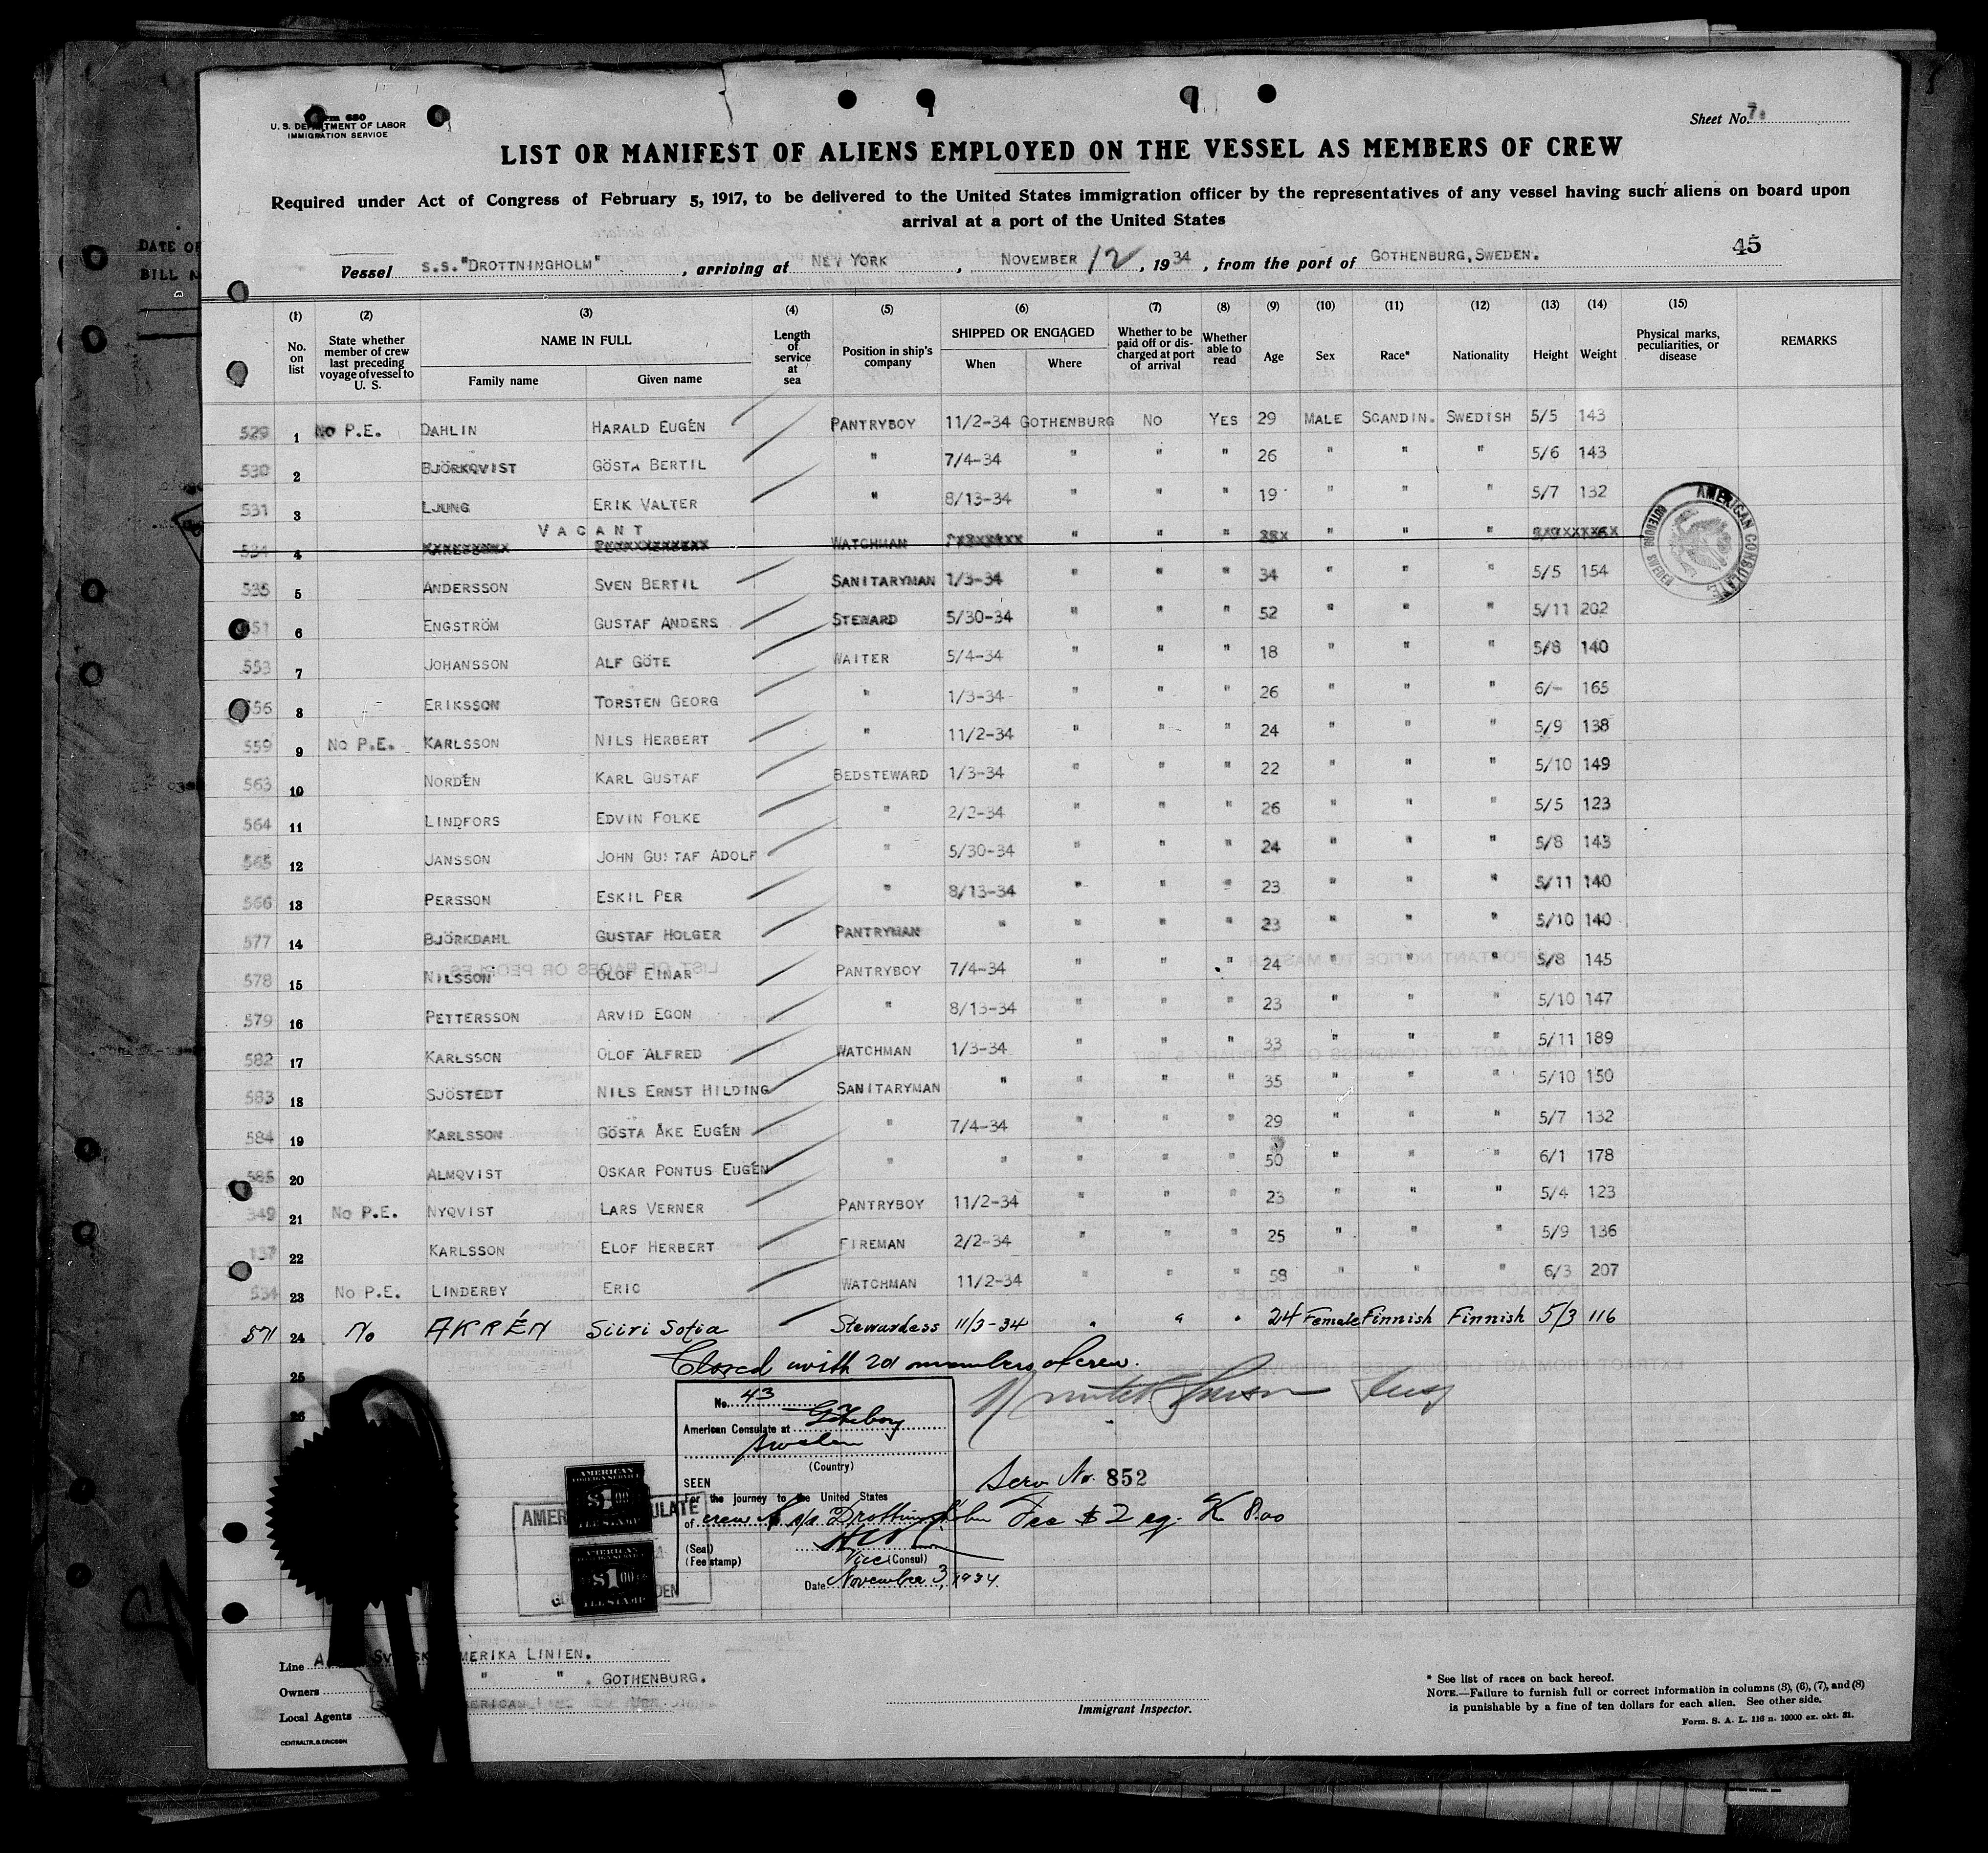 Sheet No. 7.
Form 680
U. S. DEPARTMENT OF LABOR
IMMIGRATION SERVICE
LIST OR MANIFEST OF ALIENS EMPLOYED ON THE VESSEL AS MEMBERS OF CREW
Required under Act of Congress of February 5, 1917, to be delivered to the United States immigration officer by the representatives of any vessel having such aliens on board upon
arrival at a port of the United States
45
Vessel S.S."DROTTNINGHOLM", arriving at NEW YORK, NOVEMBER 12, 1934, from the port of GOTHENBURG, SWEDEN.
(1) (2) (3) (4) (5) (6) (7) (8) (9) (10) (11) (12) (13) (14) (15)
No. on list
State whether member of crew last preceding voyage of vessel to U. S.
NAME IN FULL
Family name
Given name
Length of service at sea
Position in ship's company
SHIPPED OR ENGAGED
When
Where
Whether to be paid off or discharged at port of arrival
Whether able to read
Age
Sex
Race*
Nationality
Height
Weight
Physical marks, peculiarities, or disease
REMARKS
529 1 NO P.E. DAHLIN HARALD EUGÉN PANTRYBOY 11/2-34 GOTHENBURG NO YES 29 MALE SCANDIN. SWEDISH 5/5 143
530 2 BJÖRKQVIST GÖSTA BERTIL " 7/4-34 " " " 26 " " " 5/6 143
531 3 LJUNG ERIK VALTER " 8/13-34 " " " 19 " " " 5/7 132
534 4 VACANT WATCHMAN " " " " " "
535 5 ANDERSSON SVEN BERTIL SANITARYMAN 1/3-34 " " " 34 " " " 5/5 154
551 6 ENGSTRÖM GUSTAF ANDERS STEWARD 5/30-34 " " " 52 " " " 5/11 202
553 7 JOHANSSON ALF GÖTE WAITER 5/4-34 " " " 18 " " " 5/8 140
556 8 ERIKSSON TORSTEN GEORG " 1/3-34 " " " 26 " " " 6/- 165
559 9 NO P.E. KARLSSON NILS HERBERT " 11/2-34 " " " 24 " " " 5/9 138
563 10 NORDÉN KARL GUSTAF BEDSTEWARD 1/3-34 " " " 22 " " " 5/10 149
564 11 LINDFORS EDVIN FOLKE " 2/2-34 " " " 26 " " " 5/5 123
565 12 JANSSON JOHN GUSTAF ADOLF " 5/30-34 " " " 24 " " " 5/8 143
566 13 PERSSON ESKIL PER " 8/13-34 " " " 23 " " " 5/11 140
577 14 BJÖRKDAHL GUSTAF HOLGER PANTRYMAN " " " " 23 " " " 5/10 140
578 15 NILSSON OLOF EINAR PANTRYBOY 7/4-34 " " " 24 " " " 5/8 145
579 16 PETTERSSON ARVID EGON " 8/13-34 " " " 23 " " " 5/10 147
582 17 KARLSSON OLOF ALFRED WATCHMAN 1/3-34 " " " 33 " " " 5/11 189
583 18 SJÖSTEDT NILS ERNST HILDING SANITARYMAN " " " " 35 " " " 5/10 150
584 19 KARLSSON GÖSTA ÅKE EUGÉN " 7/4-34 " " " 29 " " " 5/7 132
585 20 ALMQVIST OSKAR PONTUS EUGÉN " " " " " 50 " " " 6/1 178
349 21 NO P.E. NYQVIST LARS VERNER PANTRYBOY 11/2-34 " " " 23 " " " 5/4 123
137 22 KARLSSON ELOF HERBERT FIREMAN 2/2-34 " " " 25 " " " 5/9 136
534 23 NO P.E. LINDERBY ERIC WATCHMAN 11/2-34 " " " 58 " " " 6/3 207
571 24 No AKRÉN Siiri Sofia Stewardess 11/3-34 " " " 24 Female Finnish Finnish 5/3 116
25 Closed with 201 members of crew.
26
AMERICAN CONSULATE
GOTEBORG SWEDEN
No. 43
American Consulate at Göteborg
Sweden
(Country)
SEEN
For the journey to the United States
of crew of s/s Drottningholm
(Seal)
(Fee stamp)
Vice (Consul)
Date November 3, 1934.
Serv No. 852
Fee $2 eq. K 8.00
AMERICAN FOREIGN SERVICE
$1.00
FEE STAMP
AMERICAN FOREIGN SERVICE
$1.00
FEE STAMP
AMERICAN CONSULATE
Line SVENSKA AMERIKA LINIEN.
Owners " " . GOTHENBURG.
Local Agents
CENTRALTR. G. ERICSON
Immigrant Inspector.
* See list of races on back hereof.
NOTE.—Failure to furnish full or correct information in columns (3), (6), (7), and (8)
is punishable by a fine of ten dollars for each alien. See other side.
Form. S. A. L. 116 n. 10000 ex. okt. 31.
DATE OF
BILL